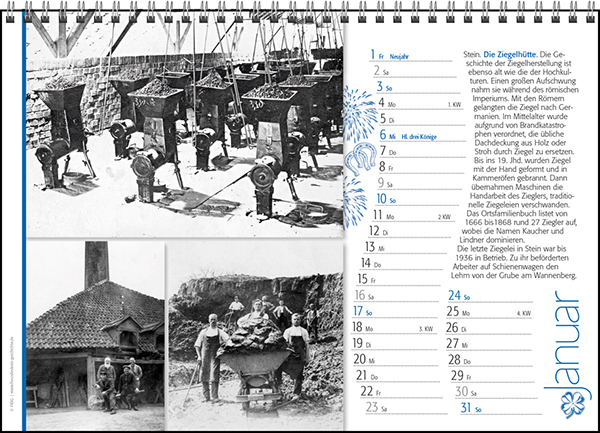 1 Fr Neujahr
2 Sa
3 So
4 Mo 1. KW
5 Di
6 Mi Hl. drei Könige
7 Do
8 Fr
9 Sa
10 So
11 Mo 2 KW
12 Di
13 Mi
14 Do
15 Fr
16 Sa
17 So
18 Mo 3. KW
19 Di
20 Mi
21 Do
22 Fr
23 Sa
24 So
25 Mo 4. KW
26 Di
27 Mi
28 Do
29 Fr
30 Sa
31 So
Stein. Die Ziegelhütte. Die Ge-
schichte der Ziegelherstellung ist
ebenso alt wie die der Hochkul-
turen. Einen großen Aufschwung
nahm sie während des römischen
Imperiums. Mit den Römern
gelangten die Ziegel nach Ger-
manien. Im Mittelalter wurde
aufgrund von Brandkatastro-
phen verordnet, die übliche
Dachdeckung aus Holz oder
Stroh durch Ziegel zu ersetzen.
Bis ins 19. Jhd. wurden Ziegel
mit der Hand geformt und in
Kammeröfen gebrannt. Dann
übernahmen Maschinen die
Handarbeit des Zieglers, traditio-
nelle Ziegeleien verschwanden.
Das Ortsfamilienbuch listet von
1666 bis 1868 rund 27 Ziegler auf,
wobei die Namen Kaucher und
Lindner dominieren.
Die letzte Ziegelei in Stein war bis
1936 in Betrieb. Zu ihr beförderten
Arbeiter auf Schienenwagen den
Lehm von der Grube am Wannenberg.
Januar